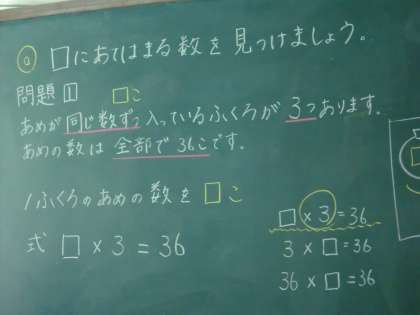 ⓐ □にあてはまる数を見つけましょう。
問題1 □こ
あめが同じ数ずつ入っているふくろが3つあります。
あめの数は全部で36こです。
1ふくろのあめの数を□こ
式 □×3=36
□×3=36
3×□=36
36×□=36